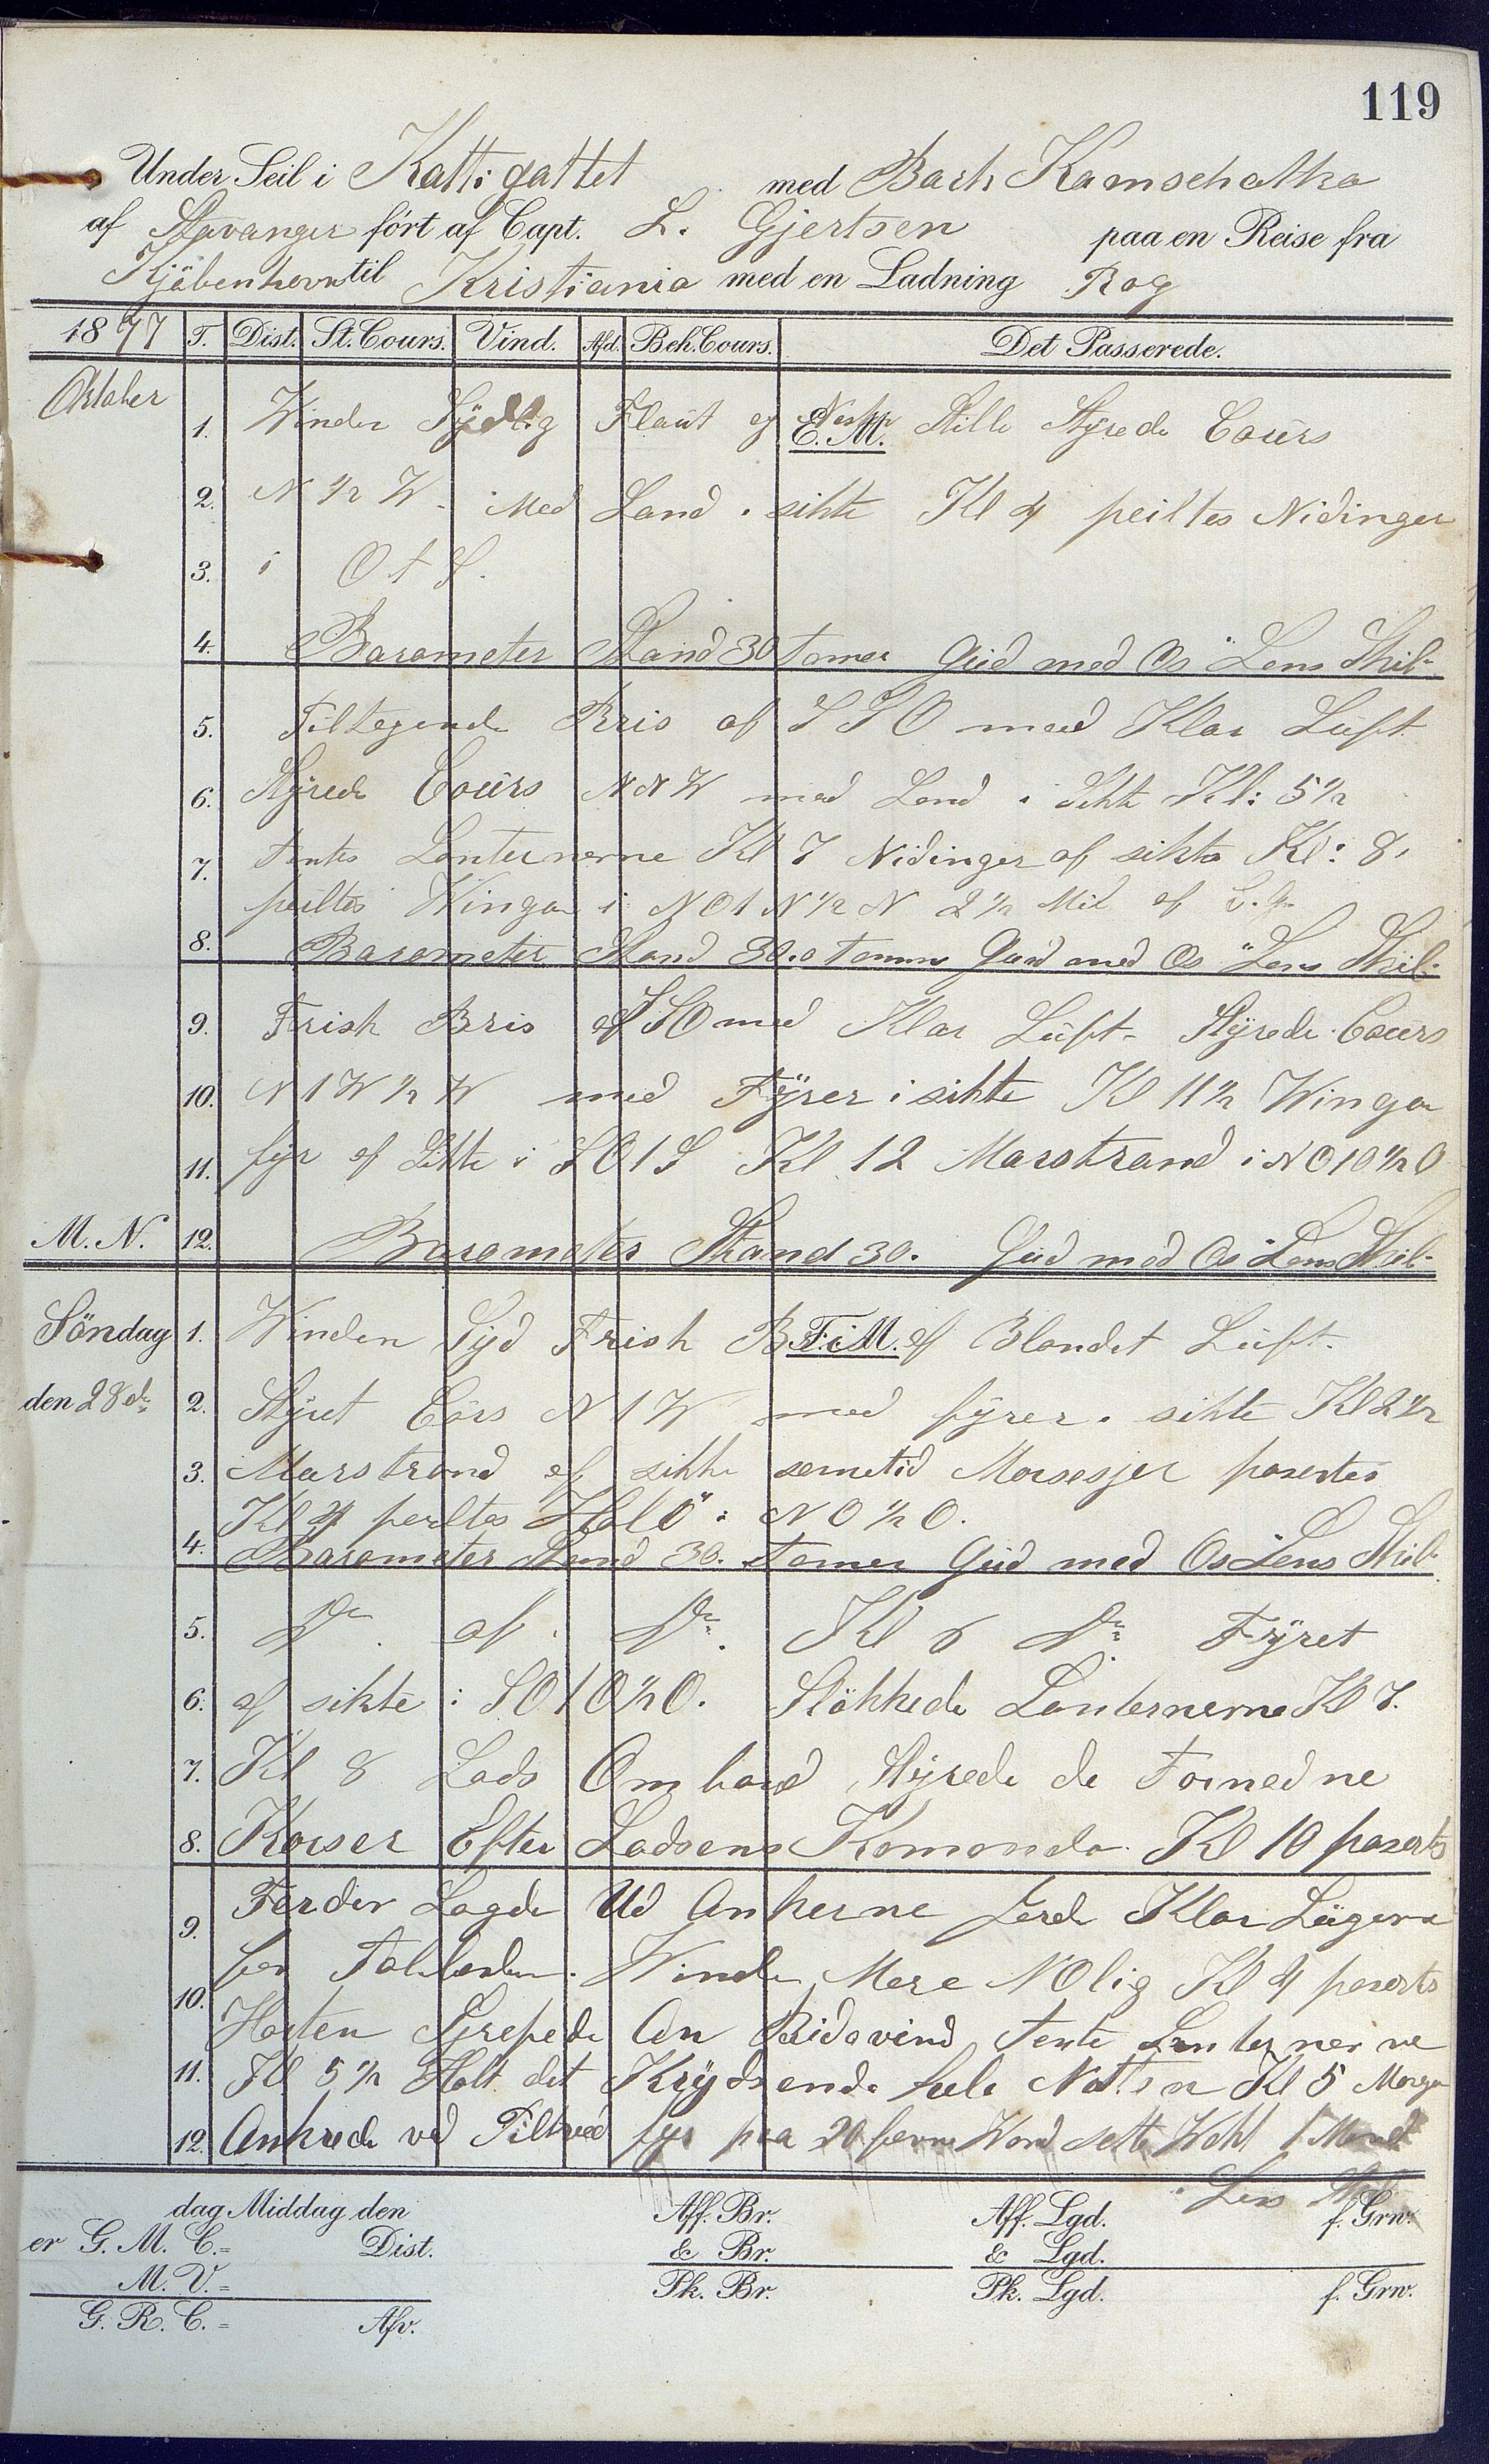 119
Under Seil i Kattigattet med Bark Kamschatka
af Stavanger ført af Capt. L. Gjertsen paa en Reise fra
Kjøbenhavn til Kristiania med en Ladning Rog
1877 T. Dist. St. Cours. Vind. Afd. Beh. Cours. Det Passerede.
Oktober
E. M.
1. Winden Sÿdlig Flaüt og Stille Stÿrede Coürs
2. N 1/2 W. Med Land i sikte Kl 4 peiltes Nidinger
3. i O t S.
4. Barometer Stand 30 tomer Güd med Os Lens Skib
5. Tiltagende Bris af SSO med Klar Lüft
6. Stÿrede Coürs NNW med Land i Sikte Kl: 5 1/2
7. tentes Lanternerne Kl 7 Nidinger af sikte Kl: 8.
peiltes Winga i NOtN 1/2 N 2 1/2 Mil af
8. Barometer Stand 30.0 tommer Güd med Os Lens Skib
9. Frisk Bris af SSO med Klar Lüft. Stÿrede Coürs
10. NtW 1/2 W med Fÿrer i sikte Kl 11 1/2 Winga
11. fÿr af Sikte i SOtS Kl 12 Marstrand i NOtO 1/2 O
M. N. 12. Barometer Stand 30. Güd med Os Lens Skib
Söndag F. M.
1. Winden Sÿd Frisk af Blandet Lüft.
den 28de 2. Stÿret Cörs NtW med fÿrer i sikte Kl 2 1/2
3. Marstrand af sikte sametid Morsesjer pasertes
Kl 4 peiltes Halö i NO 1/2 O.
4. Barometer Stand 30. tomer Güd med Os Lens Skib
5. Do af Do. Kl 6 Do Fÿret
6. af sikte i SOtO 1/2 O. Slökkede Lanternerne Kl 7.
7. Kl 8 Lods Ombord Stÿrede de Fornedne
8. Korser Efter Lodsens Komando Kl 10 paserts
9. Færder Lagde Ud Ankerne Klar Lügerne
10. for Winden Mere NOlig Kl 4 paserts
Horten An Bidevind tente Lanternerne
11. Kl 5 1/2 Holt det Krÿdsende hele Natten Kl 5 Morgen
12. Ankrede ved Filtved fÿr paa 20 favne Wand sette Wakt 1 Mand
Lens
dag Middag den Aff. Br. Aff. Lgd. f. Grw.
er G. M. C.= Dist. & Br. & Lgd.
M. V.= Pk. Br. Pk. Lgd. f. Grw.
G. R. C.= Afv.